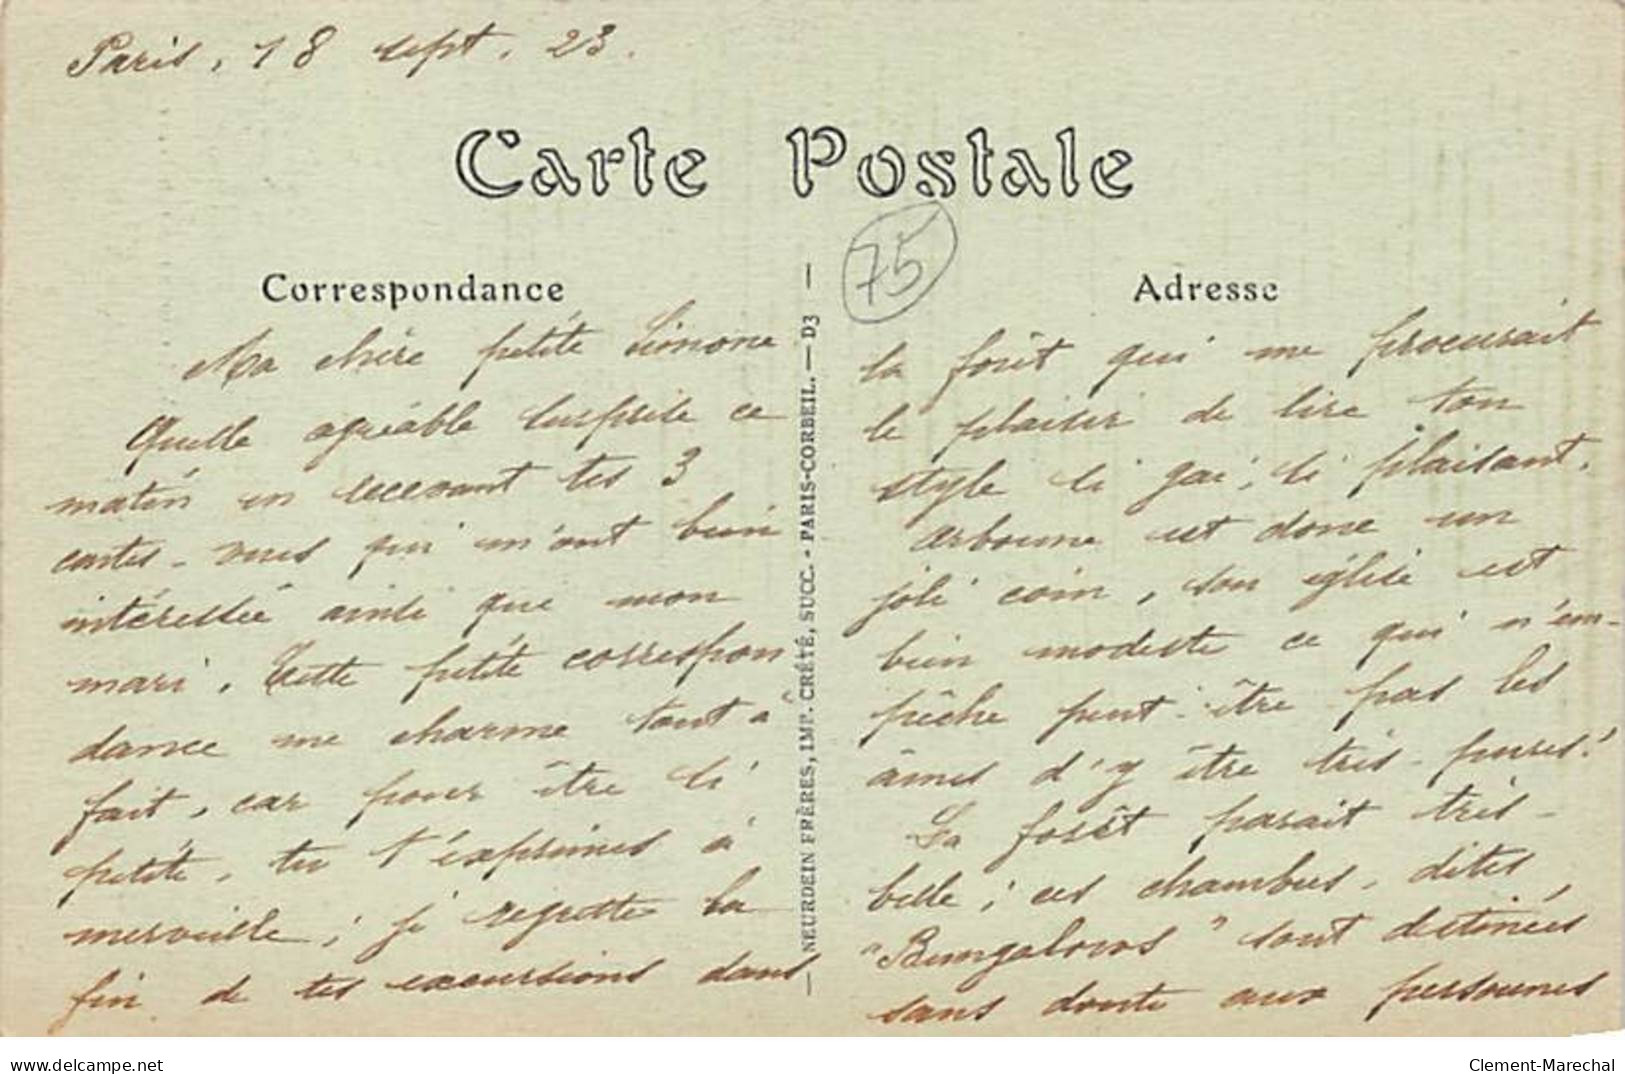 Paris, 18 sept. 23.
Carte Postale
75
Correspondance
Ma chère petite Simone
Quelle agréable surprise ce
matin en recevant tes 3
cartes-vues qui m'ont bien
intéressée ainsi que mon
mari. Cette petite correspon
dance me charme tout à
fait, car pour être si
petite, tu t'exprimes à
merveille; je regrette la
fin de tes excursions dans
— NEURDEIN FRÈRES, IMP. CRÉTÉ, SUCC. - PARIS-CORBEIL. — D3 —
Adresse
la forêt qui me procurait
le plaisir de lire ton
style si gai, si plaisant.
Arbonne est donc un
joli coin, son église est
bien modeste ce qui n'em-
pêche peut-être pas les
âmes d'y être très-pures!
La forêt parait très-
belle; ces chambres, dites
"Bungalows" sont destinées
sans doute aux personnes
www.delcampe.net
Clement-Marechal